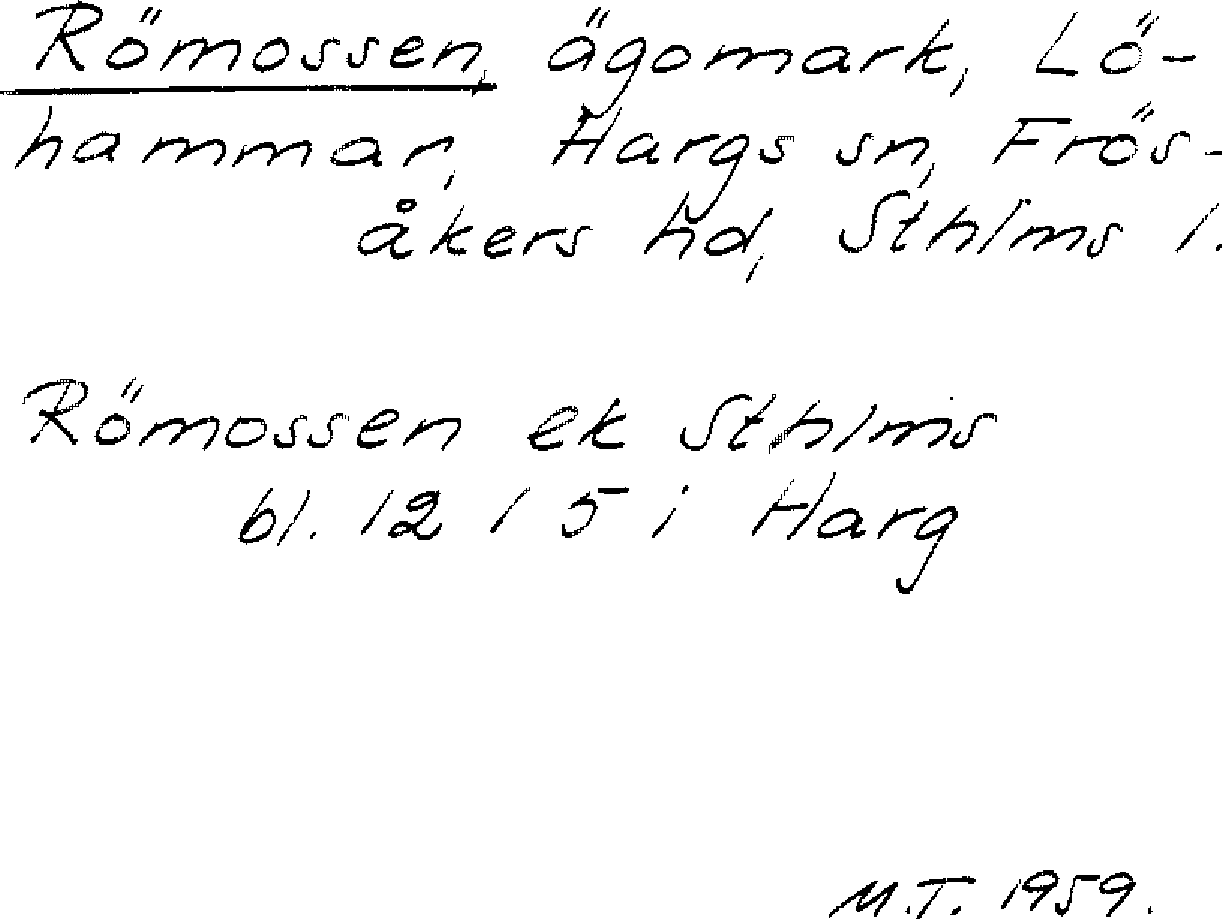 Römossen, ägomark, Lö-
hammar, Hargs sn, Frös-
åkers hd, Sthlms l.
Römossen ek Sthlms
bl. 12 / 5 i Harg
M.T. 1959.